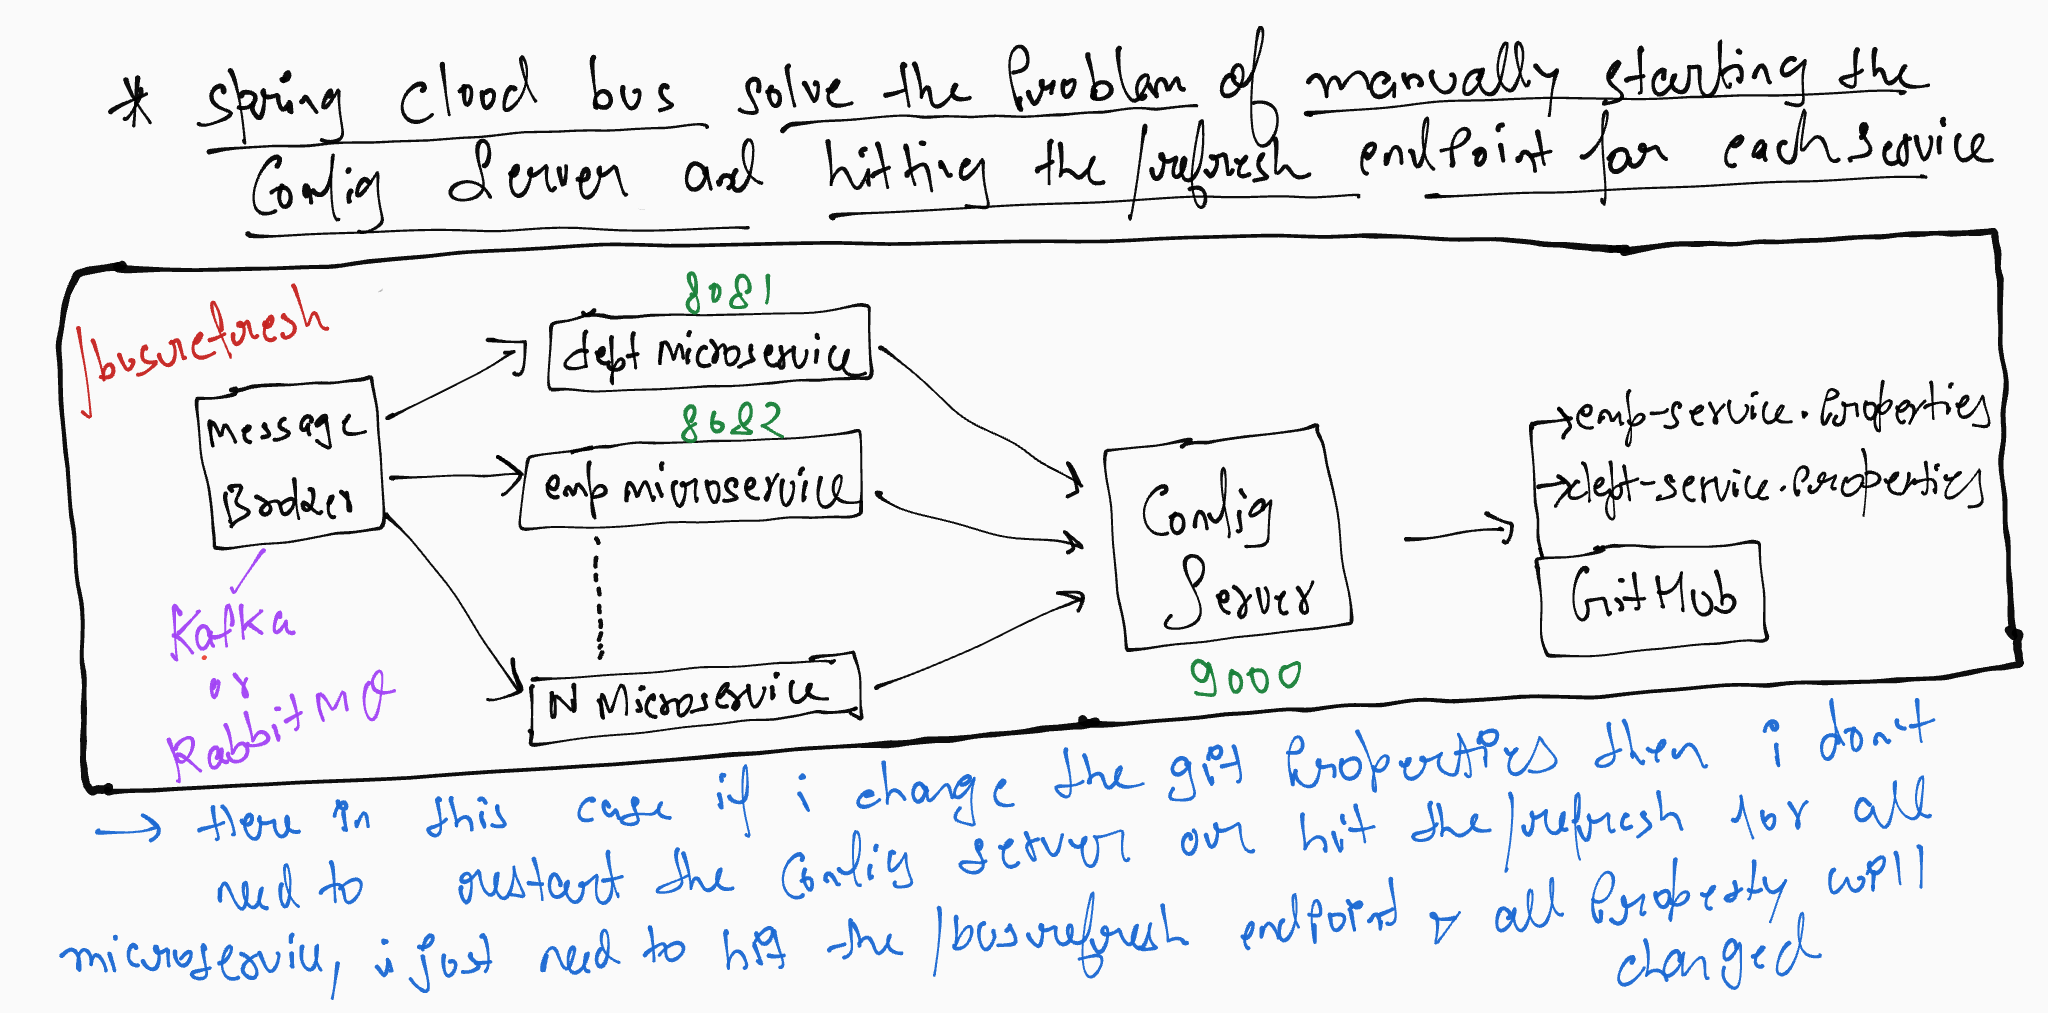 * Spring Clood bus solve the Problam of manually starting the
Config Server and hitting the /refresh endpoint for each service
/busrefresh
8081
dept microservice
Message
Broker
8682
emp microservice
Kafka
or
RabbitMQ
N Microservice
Config
Server
9000
emp-service.Properties
dept-service.Properties
GitHub
→ Here in this case if i change the git Properties then i don't
need to restart the Config server our hit the /refresh for all
microservice, i just need to hit the /busrefresh endpoint & all Property will
changed